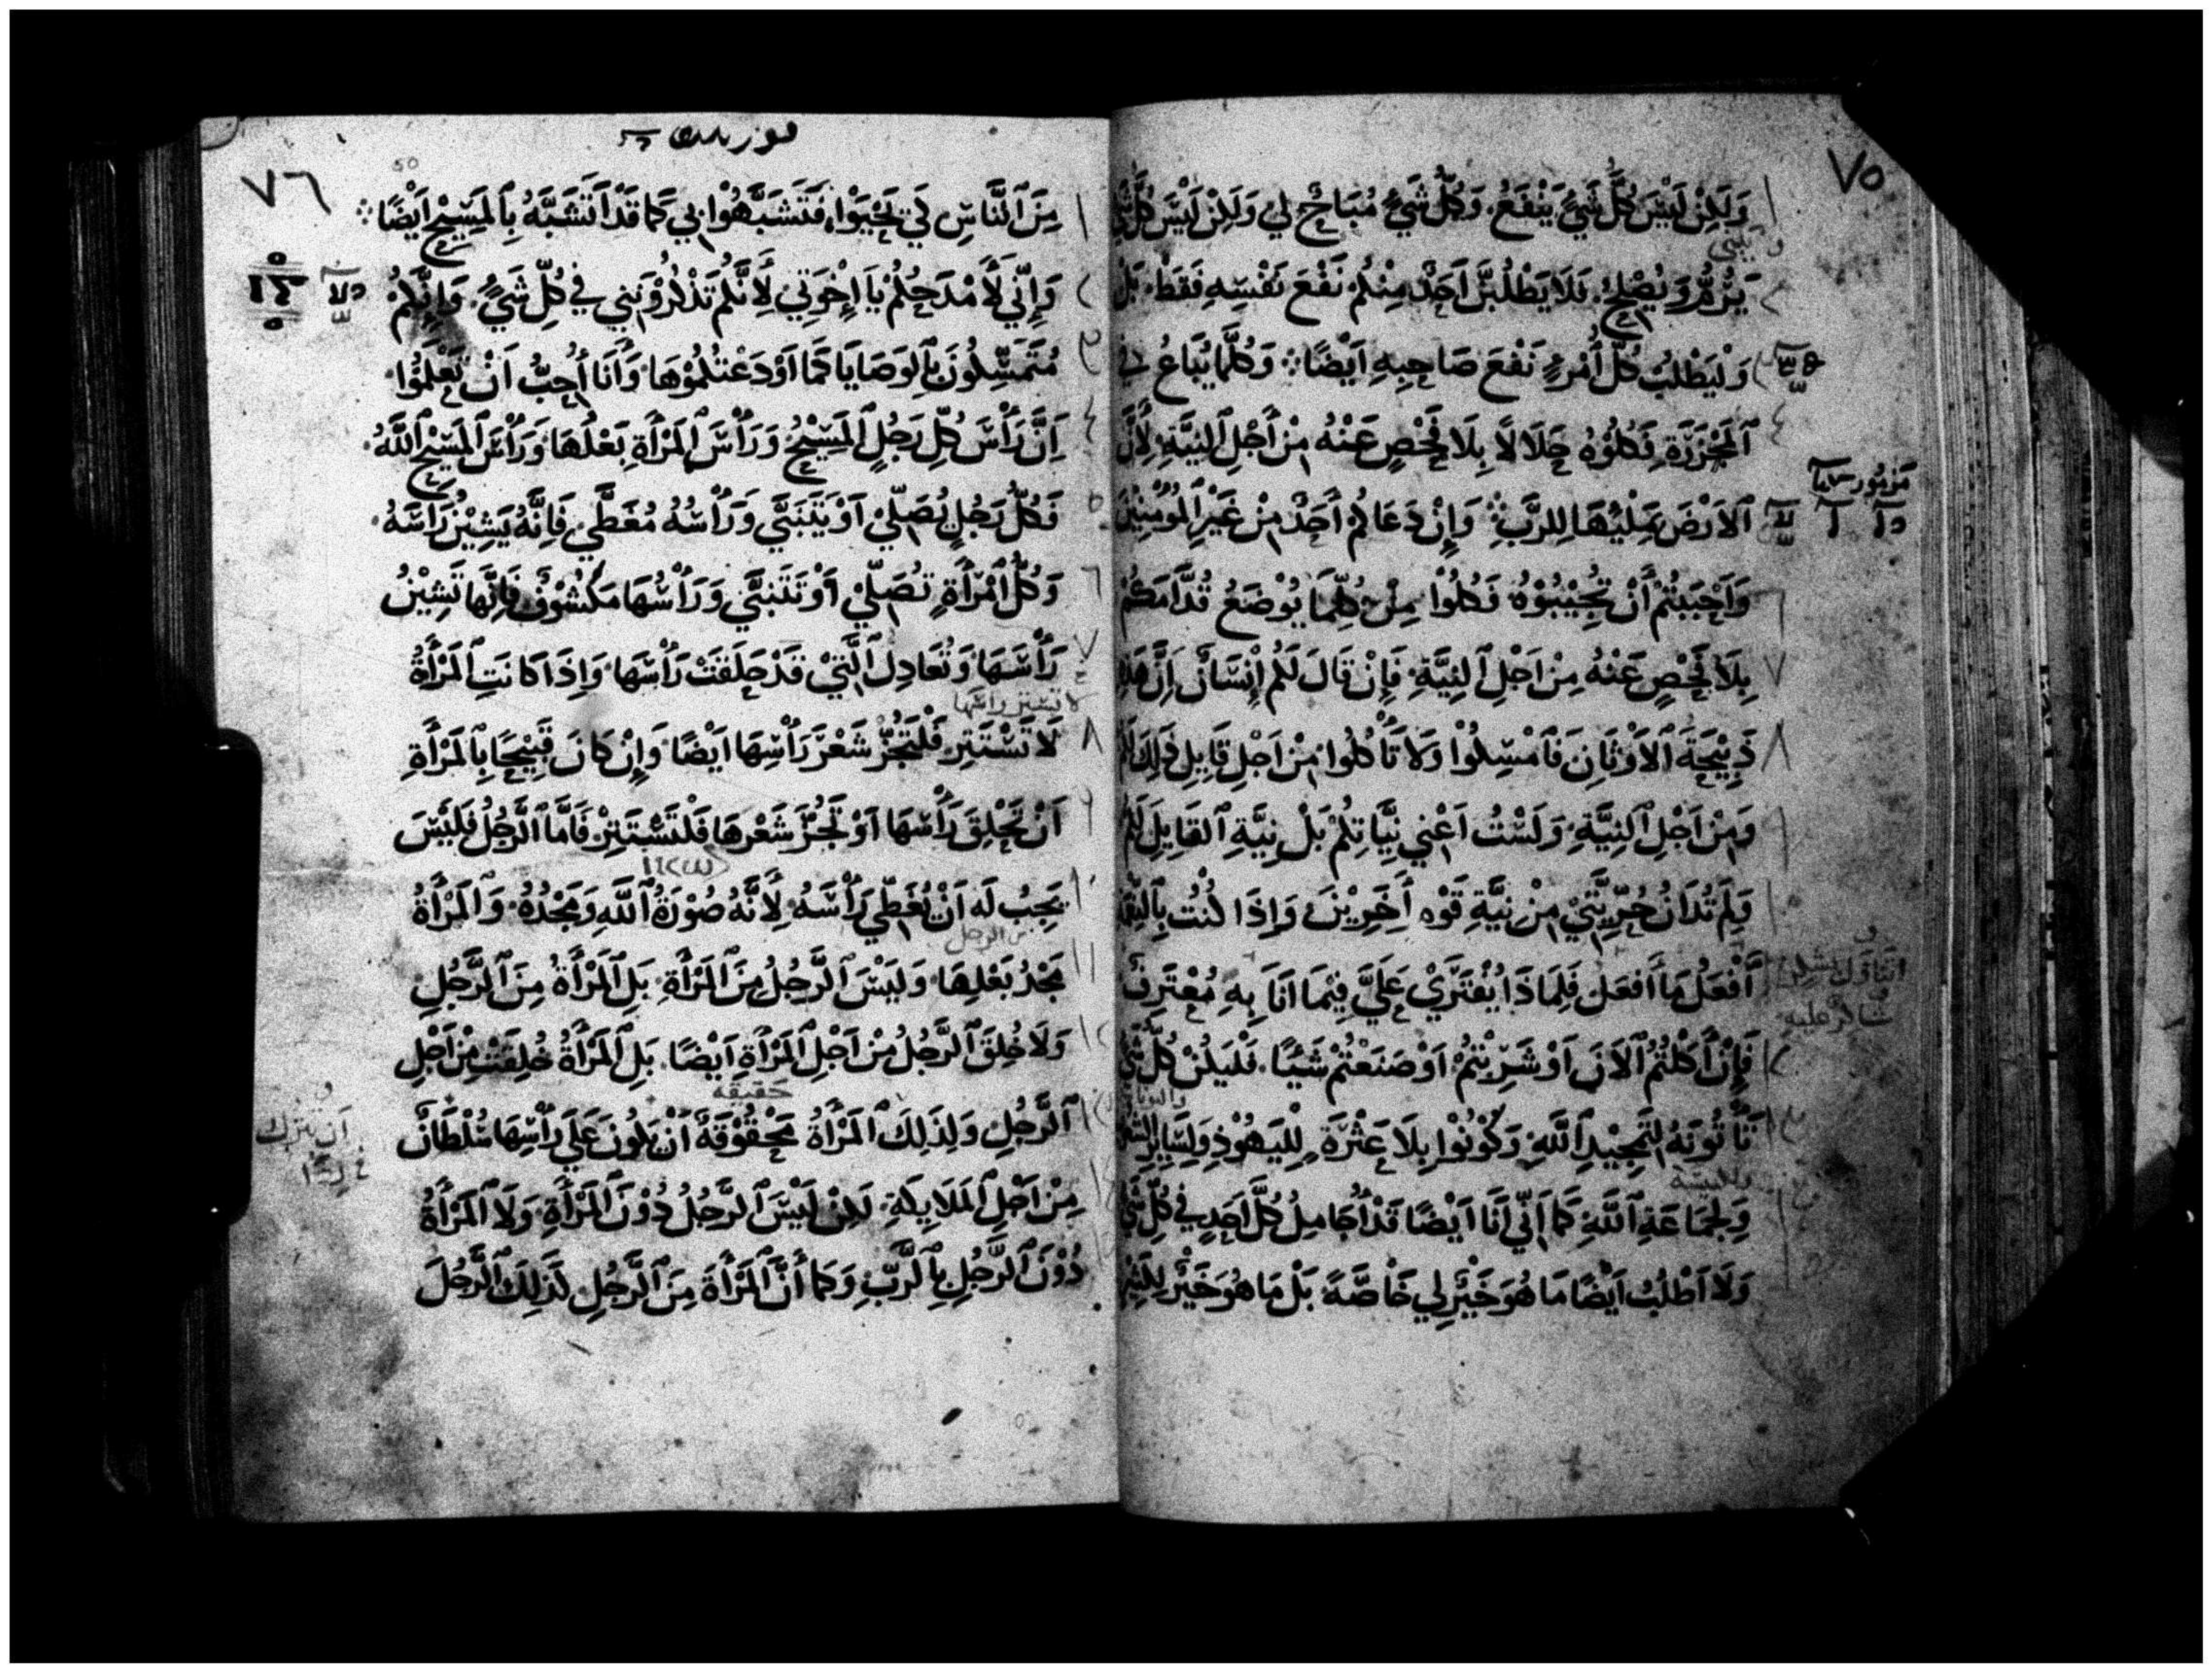 ٧٥
١ وَلَكِنْ لَيْسَ كُلُّ شَيْءٍ يَنْفَعُ. وَكُلُّ شَيْءٍ مُبَاحٌ لِي وَلَكِنْ لَيْسَ كُلُّ شَيْ
٢ فَلَا يَطْلُبَنَّ أَحَدٌ مِنْكُمْ نَفْعَ نَفْسِهِ فَقَطْ. بَلْ
٣ وَلْيَطْلُبْ كُلُّ أَمْرِءٍ نَفْعَ صَاحِبِهِ اَيْضًا ⁘ وَكُلَّمَا يُبَاعُ فِي
٤ ٱلْمَجْزَرَةِ فَكُلُوْهُ حَلَالًا بِلَا فَحْصٍ عَنْهُ مِنْ أَجْلِ ٱلنِيَّةِ لِأَنَّ
مزمور
ٱلاَرْضَ بِمِلْئِهَا لِلرَّبِّ ⁘ وَإِنْ دَعَاكُمْ أَحَدٌ مِنْ غَيْرِ ٱلْمُؤْمِنِيْنَ
٦ وَاَحْبَبْتُمْ أَنْ تُجِيْبُوْهُ فَكُلُوْا مِنْ كُلِّمَا يُوْضَعُ قُدَّامَكُمْ
٧ بِلَا فَحْصٍ عَنْهُ مِنْ اَجْلِ ٱلنِيَّةِ. فَإِنْ قَالَ لَكُمْ إِنْسَانٌ إِنَّ هَذِهِ
٨ ذَبِيْحَةُ ٱلاَوْثَانِ فَٱمْسِكُوْا وَلَا تَأْكُلُوا مِنْ اَجْلِ قَايِلِ ذَلِكَ لَكُمْ
٩ وَمِنْ اَجْلِ ٱلنِيَّةِ. وَلَسْتُ اَعْنِي نِيَّاتِكُمْ بَلْ نِيَّةِ ٱلقَايِلِ لَكُمْ
١٠ وَلِمَ تُدَانُ حُرِّيَّتِيْ مِنْ نِيَّةِ قَوْمٍ أَخَرِيْنَ. وَإِذَا كُنْتُ بِٱلنِعْمَةِ
أَفْعَلُ مَا أَفعَلُ فَلِمَاذَا يُفْتَرَيْ عَلَيَّ فِيْمَا اَنَا بِهِ مُعْتَرِفٌ
شاكر عليه
١٢ فَإِنْ أَكَلْتُمُ ٱلاَنَ اَوْ شَرِبْتُمْ اَوْ صَنَعْتُمْ شَيْئًا. فَلْيَكُنْ كُلُّ شَيْ
١٣ تَأْتُونَهُ لِتَمْجِيْدِ ٱللَّهِ وَكُوْنُوْا بِلَا عَثْرَةٍ. لِلْيَهُوْدِ وَلِسَايِرِ
وَلِجَمَاعَةِ ٱللَّهِ. كَمَا اَنِّي اَنَا اَيْضًا قَدْ أُجَامِلُ كُلَّ اَحَدٍ فِي كُلِّ شَيْ
وَلَا اَطْلُبُ اَيْضًا مَا هُوَ خَيْرٌ لِي خَاصَّةً. بَلْ مَا هُوَ خَيْرٌ لِلكَثِيْرِ
٧٦
١ مِنَ ٱلنَّاسِ لِكَيْ يَحْيَوْا فَتَشَبَّهُوْا بِي كَمَا قَدْ اَتَشَبَّهُ بِٱلمَسِيْحِ اَيْضًا ⁘
٢ وَإِنِّي لَأَمْدَحُكُمْ يَا إِخْوَتِي لِأَنَّكُمْ تَذْكُرُوْنَنِي فِي كُلِّ شَيْءٍ. وَإِنَّكُمْ
٣ مُتَمَسِّكُونَ بِٱلوَصَايَا كَمَا اَوْدَعْتُكُمُوْهَا وَأَنَا أُحِبُّ اَنْ تَعْلَمُوْا.
٤ إِنَّ رَأْسَ كُلِّ رَجُلٍ ٱلمَسِيْحُ وَرَأْسَ ٱلمَرْأَةِ بَعْلُهَا وَرَأْسَ ٱلمَسِيْحِ ٱللَّهُ.
٥ فَكُلُّ رَجُلٍ يُصَلِّيْ اَوْ يَتَنَبَّيْ وَرَأْسُهُ مُغَطَّي فَإِنَّهُ يَشِيْنُ رَاسَهُ.
٦ وَكُلُّ ٱمْرَأَةٍ تُصَلِّيْ اَوْ تَتَنَبَّي وَرَأْسُهَا مَكْشُوْفٌ فَإِنَّهَا تَشِيْنُ
٧ رَأْسَهَا وَتُعَادِلُ ٱلَّتِيْ قَدْ حَلَقَتْ رَأْسَهَا وَإِذَا كَانَتِ ٱلمَرْأَةُ
لا تستر راسها
٨ لَا تَسْتَتِرِ فَلْتَجُزَّ شَعْرَ رَأْسِهَا اَيْضًا وَإِنْ كَانَ قَبِيْحًا بِٱلمَرْأَةِ
٩ اَنْ تَحْلِقَ رَأْسَهَا اَوْ تَجُزَّ شَعْرَهَا فَلْتَسْتَتِرْ فَاَمَّا ٱلرَّجُلُ فَلَيْسَ
١٠ يَجِبُ لَه اَنْ يُغَطِّي رَأْسَهُ لِأَنَّهُ صُوْرَةُ ٱللَّهِ وَمَجْدُهُ. وَٱلمَرْأَةُ
من الرجل
١١ مَجْدُ بَعْلِهَا وَلَيْسَ ٱلرَّجُلُ مِنَ ٱلمَرْأَةِ. بَلِ ٱلمَرْأَةُ مِنَ ٱلرَّجُلِ
١٢ وَلَا خُلِقَ ٱلرَّجُلُ مِنْ اَجْلِ ٱلمَرْأَةِ اَيْضًا. بَلِ ٱلمَرْأَةُ خُلِقَتْ مِنْ اَجْلِ
حقيقه
ٱلرَّجُلِ وَلِذَلِكَ ٱلمَرْأَةُ مَحْقُوْقَةٌ اَنْ يَكُونَ عَلَي رَأْسِهَا سُلْطَانٌ
مِنْ اَجْلِ ٱلمَلَايِكَةِ. لَكِنْ لَيْسَ ٱلرَّجُلُ دُوْنَ ٱلمَرْأَةِ وَلَا ٱلمَرْأَةُ
دُوْنَ ٱلرَّجُلِ بِٱلرَّبِّ وَكَمَا أَنَّ ٱلمَرْأَةَ مِنَ ٱلرَّجُلِ كَذَلِكَ ٱلرَّجُلَ